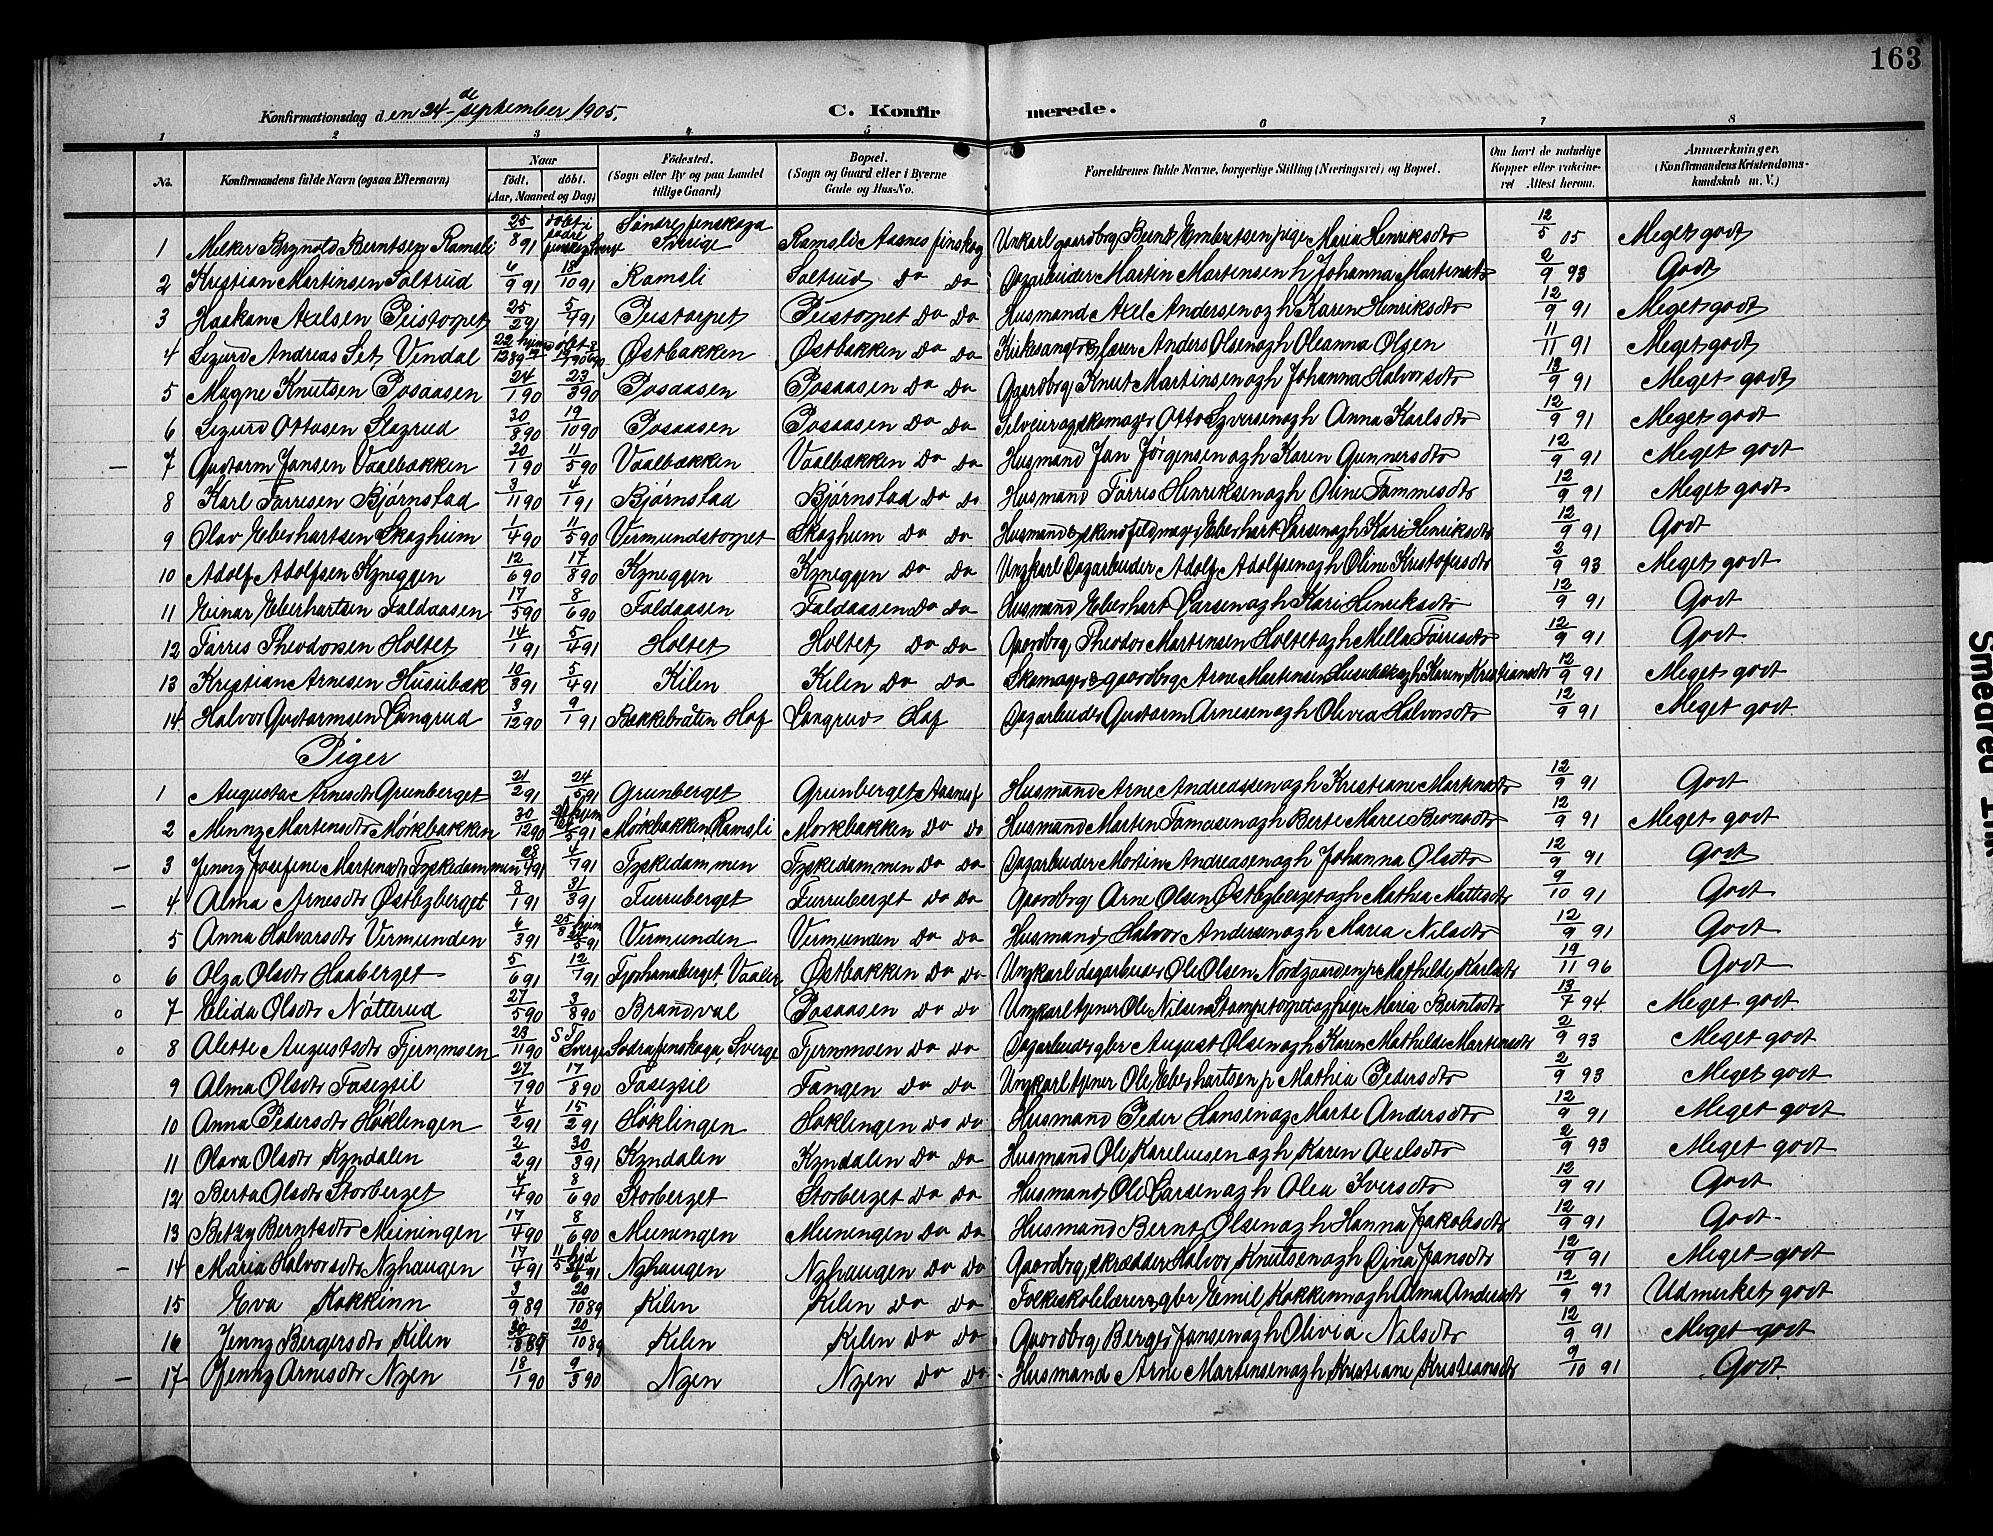 163
Konfirmationsdag den 24de september 1905.
C. Konfirmerede.
1 2 3 4 5 6 7 8
No. Konfirmandens fulde Navn (ogsaa Efternavn) Naar født, døbt. (Aar, Maaned og Dag) Fødested. (Sogn eller By og paa Landet tillige Gaard) Bopæl. (Sogn og Gaard eller i Byerne Gade og Hus-No. Forældrenes fulde Navne, borgerlige Stilling (Næringsvei) og Bopæl. Om havt de naturlige Kopper eller vakcineret Attest herom. Anmærkninger. (Konfirmandens Kristendomskundskab m. V.)
1 Melker Brynolf Berntsen Ramsli 25/8 91 døbt i Søndre finskoga Sverige Ramsli Aasnes finskog Unkarl gaardbrg Bernt Embretsen pige Maria Henriksdtr 12/5 05 Meget godt
2 Kristian Martinsen Saltrud 6/9 91 18/10 91 Ramsli Saltrud do do Dagarbeider Martin Martensen h Johanna Martensdtr 2/9 93 Godt
3 Haakan Axelsen Peistorpet 25/2 91 5/4 91 Peistorpet Peistorpet do do Husmand Axel Andersen og h Karen Henriksdtr 12/9 91 Meget godt
4 Sigurd Andreas Set. Vendal 22/12 89 Østbakken Østbakken do do Kirkesanger & lærer Anders Olsen og h Oleanna Olsen 11/11 91 Meget godt
5 Magne Knutsen Posaasen 24/1 90 23/3 90 Posaasen Posaasen do do Gaardbrg Knut Martinsen og h Johanna Halvorsdtr 12/9 91 Meget godt
6 Sigurd Ottosen Slagrud 30/8 90 19/10 90 Posaasen Posaasen do do Otto Syversen og h Anna Karlsdtr 12/9 91 Meget godt
7 Gustav Jansen Vaalbækken 20/1 90 11/5 90 Vaalbækken Vaalbækken do do Husmand Jan Jørgensen og h Karen Gunnersdtr 12/9 91 Meget godt
8 Karl Tarresen Bjørnstad 3/11 90 4/1 91 Bjørnstad Bjørnstad do do Husmand Tørris Henriksen og h Oline Tommesdtr 12/9 91 Meget godt
9 Olav Eberhartsen Skaghum 1/4 90 11/5 90 Vermundstorpet Skaghum do do Husmand & skindfeldmager Eberhart Larsen og h Kari Henriksdtr 12/9 91 Godt
10 Adolf Adolfsen Kyneggen 12/6 90 17/8 90 Kyneggen Kyneggen do do Ungkarl Dagarbeider Adolf Adolfsen og h Oline Kristofersdtr 2/9 93 Meget godt
11 Einar Eberhartsen Faldaasen 17/5 90 8/6 90 Faldaasen Faldaasen do do Husmand Eberhart Larsen og h Kari Henriksdtr 12/9 91 Godt
12 Tørris Theodorsen Holtet 14/1 91 5/4 91 Holtet Holtet do do Gaardbrg Theodor Martinsen Holtet og h Mella Tørresdtr 12/9 91 Godt
13 Kristian Arnesen Husubæk 10/3 91 5/4 91 Kilen Kilen do do Skomager & gaardbrg Arne Martensen Husubæk og h Karen Kristiansdtr 12/9 91 Meget godt
14 Halvor Gustavsen Langrud 3/12 90 9/1 91 Bakkebraaten Hof Langrud Hof Dagarbeider Gustav Arnesen og h Olivia Halvorsdtr 12/9 91 Meget godt
Piger
1 Augusta Arnesdtr Grunberget 21/2 91 24/5 91 Grunberget Grunberget Aasnes f Husmand Arne Andreassen og h Kristiane Martinsdtr 12/9 91 Godt
2 Menny Martensdtr Mørkbakken 30/12 90 Mørkbakken, Ramsli Mørkbakken do do Husmand Martin Tomasen og h Berte Marie Berntsdtr 12/9 91 Meget godt
3 Jenny Josefine Martensdtr Tyskedammen 28/4 91 4/7 91 Tyskedammen Tyskedammen do do Dagarbeider Mortin Andreasen og h Johanna Olsdtr 12/9 91 Godt
4 Alma Arnesdtr Østbyberget 8/1 91 31/3 91 Furruberget Furruberget do do Gaardbrg Arne Olsen Østbyberget og h Mathea Mattesdtr 9/10 91 Godt
5 Anna Halvorsdtr Vermunden 6/3 91 Vermunden Vermunden do do Husmand Halvor Andersen og h Maria Nilsdtr 12/9 91 Godt
6 Olga Olsdtr Haaberget 5/6 91 12/7 91 Fjorhanaberget, Vaaler Østbakken do do Ungkarl dagarbeider Ole Olsen Nordgaarden p Mathilde Karlsdtr 19/11 96 Godt
7 Elida Olsdtr Nøtterud 27/5 90 3/8 90 Brandval Posaasen do do Ungkarl tjener Ole Nilsen Stampetorpet og pige Maria Berntsdtr 13/7 94 Meget godt
8 Alette Augustsdtr Tjernmoen 23/11 90 Sverge Södrafinskoga, Sverge Tjernmoen do do Dagarbeider gbr August Olsen og h Karen Mathilde Martensdtr 2/9 93 Meget godt
9 Alma Olsdtr Fasegsil 27/7 90 17/8 90 Fasegsil Tangen do do Ungkarl tjener Ole Eberhartsen p Mathea Pedersdtr 2/9 93 Meget godt
10 Anna Pedersdtr Høklingen 4/2 91 15/2 91 Høklingen Høklingen do do Husmand Peder Hansen og Marte Andersdtr 12/9 91 Meget godt
11 Olava Olsdtr Kyndalen 2/2 91 30/3 91 Kyndalen Kyndalen do do Husmand Ole Kareliusen og h Karen Axelsdtr 2/9 93 Meget godt
12 Berta Olsdtr Storberget 4/4 90 8/6 90 Storberget Storberget do do Husmand Ole Larsen og h Olea Iversdtr 12/9 91 Godt
13 Betzy Berntsdtr Meiningen 17/4 90 8/6 90 Meiningen Meiningen do do Husmand Bernt Olsen og h Hanna Jakobsdtr 12/9 91 Godt
14 Maria Halvorsdtr Nyhaugen 17/4 91 Nyhaugen Nyhaugen do do Gaardbrg, skrædder Halvor Knutsen og h Dina Jansdtr 12/9 91 Meget godt
15 Eva Kokkinn 3/9 89 20/10 89 Kilen Kilen do do Folkeskolelærer & gbr Emil Kokkinn og h Alma Andersdtr 12/9 91 Udmerket godt
16 Jenny Bergersdtr Kilen 30/8 89 20/10 89 Kilen Kilen do do Gaardbrg Berger Jansen og h Olivia Nilsdtr 12/9 91 Meget godt
17 Jenny Arnesdtr Nyen 18/1 90 9/3 90 Nyen Nyen do do Husmand Arne Martensen og h Kristiane Kristiansdtr 9/10 91 Godt
Smeared Ink